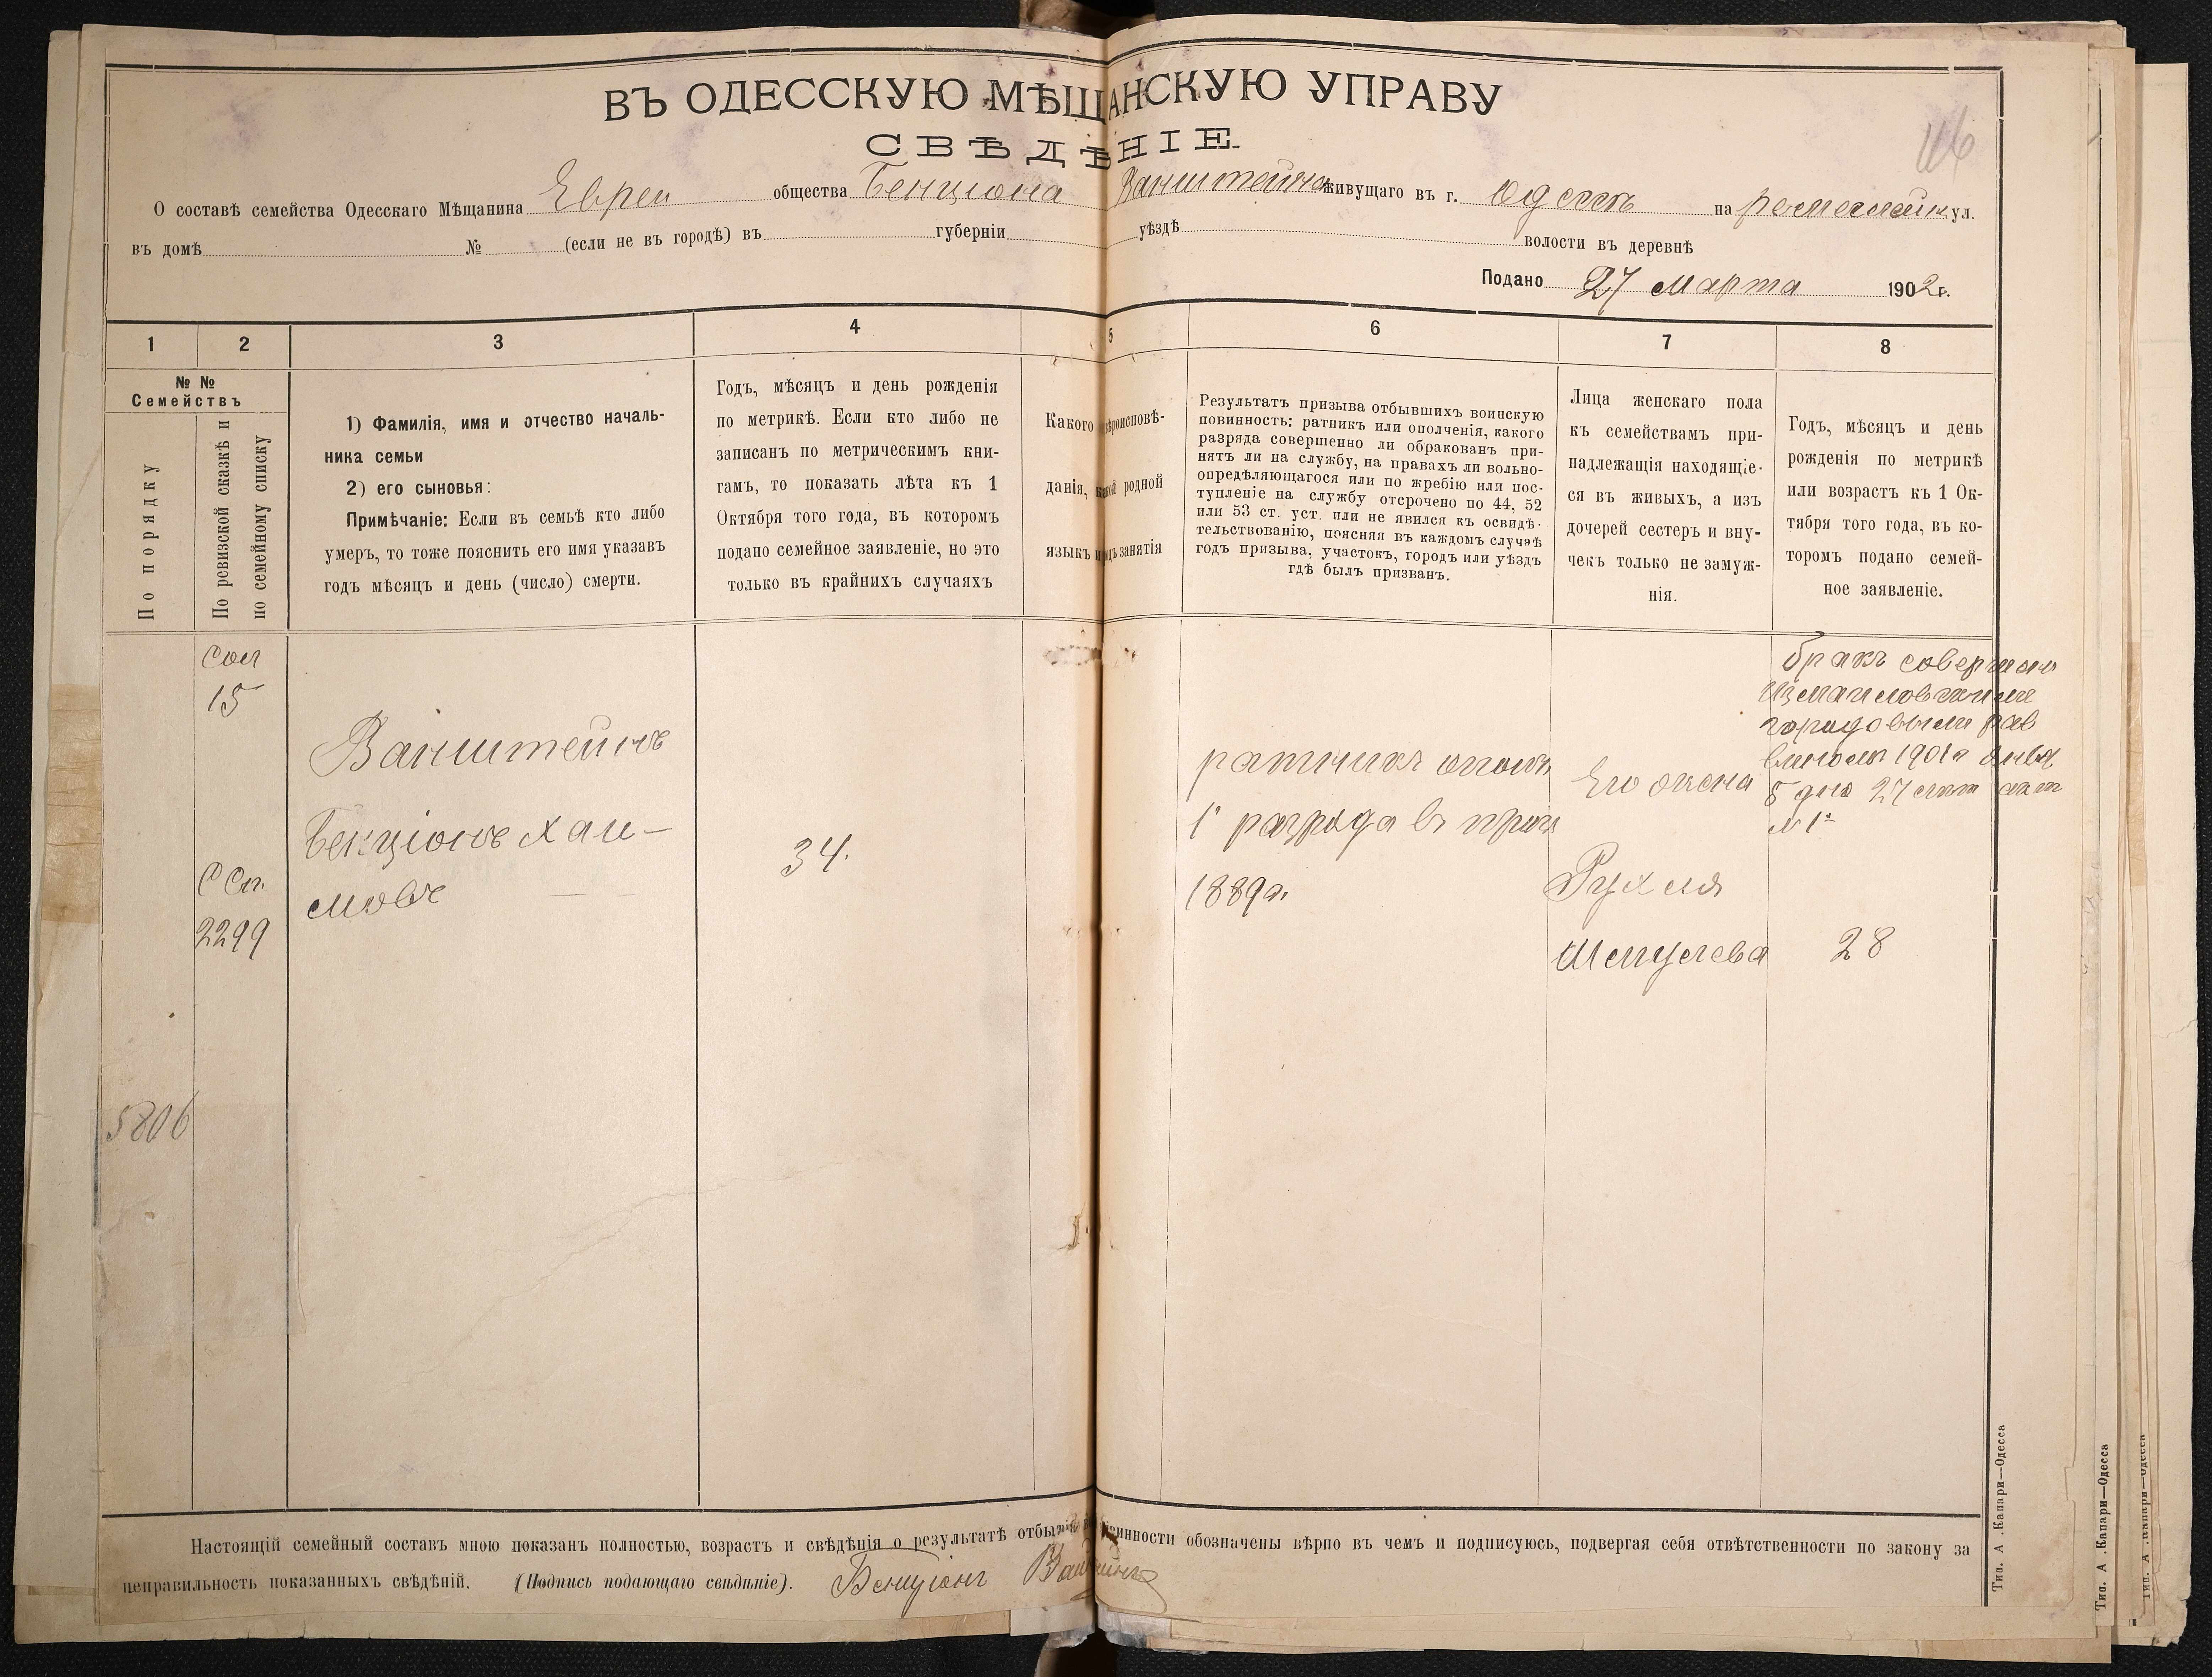 ВЪ ОДЕССКУЮ МѢЩАНСКУЮ УПРАВУ
СВѢДѢНІЕ.
О составѣ семейства Одесскаго Мѣщанина Евреи общества Бенціона Ванштейна живущаго въ г. Одессѣ на ул.
въ домѣ № (если не въ городѣ) въ губерніи уѣздѣ волости въ деревнѣ
Подано 27 Марта 1902 г.
1 2 3 4 5 6 7 8
№ №
Семействъ
По порядку
По ревизской сказкѣ и
по семейному списку
1) Фамилія, имя и отчество началь-
ника семьи
2) его сыновья:
Примѣчаніе: Если въ семьѣ кто либо
умеръ, то тоже пояснить его имя указавъ
годъ мѣсяцъ и день (число) смерти.
Годъ, мѣсяцъ и день рожденія
по метрикѣ. Если кто либо не
записанъ по метрическимъ кни-
гамъ, то показать лѣта къ 1
Октября того года, въ которомъ
подано семейное заявленіе, но это
только въ крайнихъ случаяхъ
Какого вѣроисповѣ-
данія, какой родной
языкъ и родъ занятія
Результатъ призыва отбывшихъ воинскую
повинность: ратникъ или ополченія, какого
разряда совершенно ли обракованъ при-
нятъ ли на службу, на правахъ ли вольно-
опредѣляющагося или по жребію или пос-
тупленіе на службу отсрочено по 44, 52
или 53 ст. уст. или не явился къ освидѣ-
тельствованію, поясняя въ каждомъ случаѣ
годъ призыва, участокъ, городъ или уѣздъ
гдѣ былъ призванъ.
Лица женскаго пола
къ семействамъ при-
надлежащія находящіе-
ся въ живыхъ, а изъ
дочерей сестеръ и вну-
чекъ только не замуж-
нія.
Годъ, мѣсяцъ и день
рожденія по метрикѣ
или возрастъ къ 1 Ок-
тября того года, въ ко-
торомъ подано семей-
ное заявленіе.
15
Ванштейнъ
Бенціонъ Хаи-
мовъ
34.
С Сп.
2299
5806
ратникъ ополч
1 разряда въ приз
1889 г.
Его жена
Рухля
28
бракъ совершонъ
Измаиловскимъ
городовымъ рав
виномъ 1901 г Янвя
5 дня 27 акт
№ 1
Настоящій семейный составъ мною показанъ полностью, возрастъ и свѣдѣнія о результатѣ отбытія повинности обозначены вѣрно въ чемъ и подписуюсь, подвергая себя отвѣтственности по закону за
неправильность показанныхъ свѣдѣній. (Подпись подающаго свѣдѣніе). Бенціонъ Ванштейнъ
Тип. А .Капари—Одесса
Тип. А .Капари—Одесса
Тип. А .Капари—Одесса